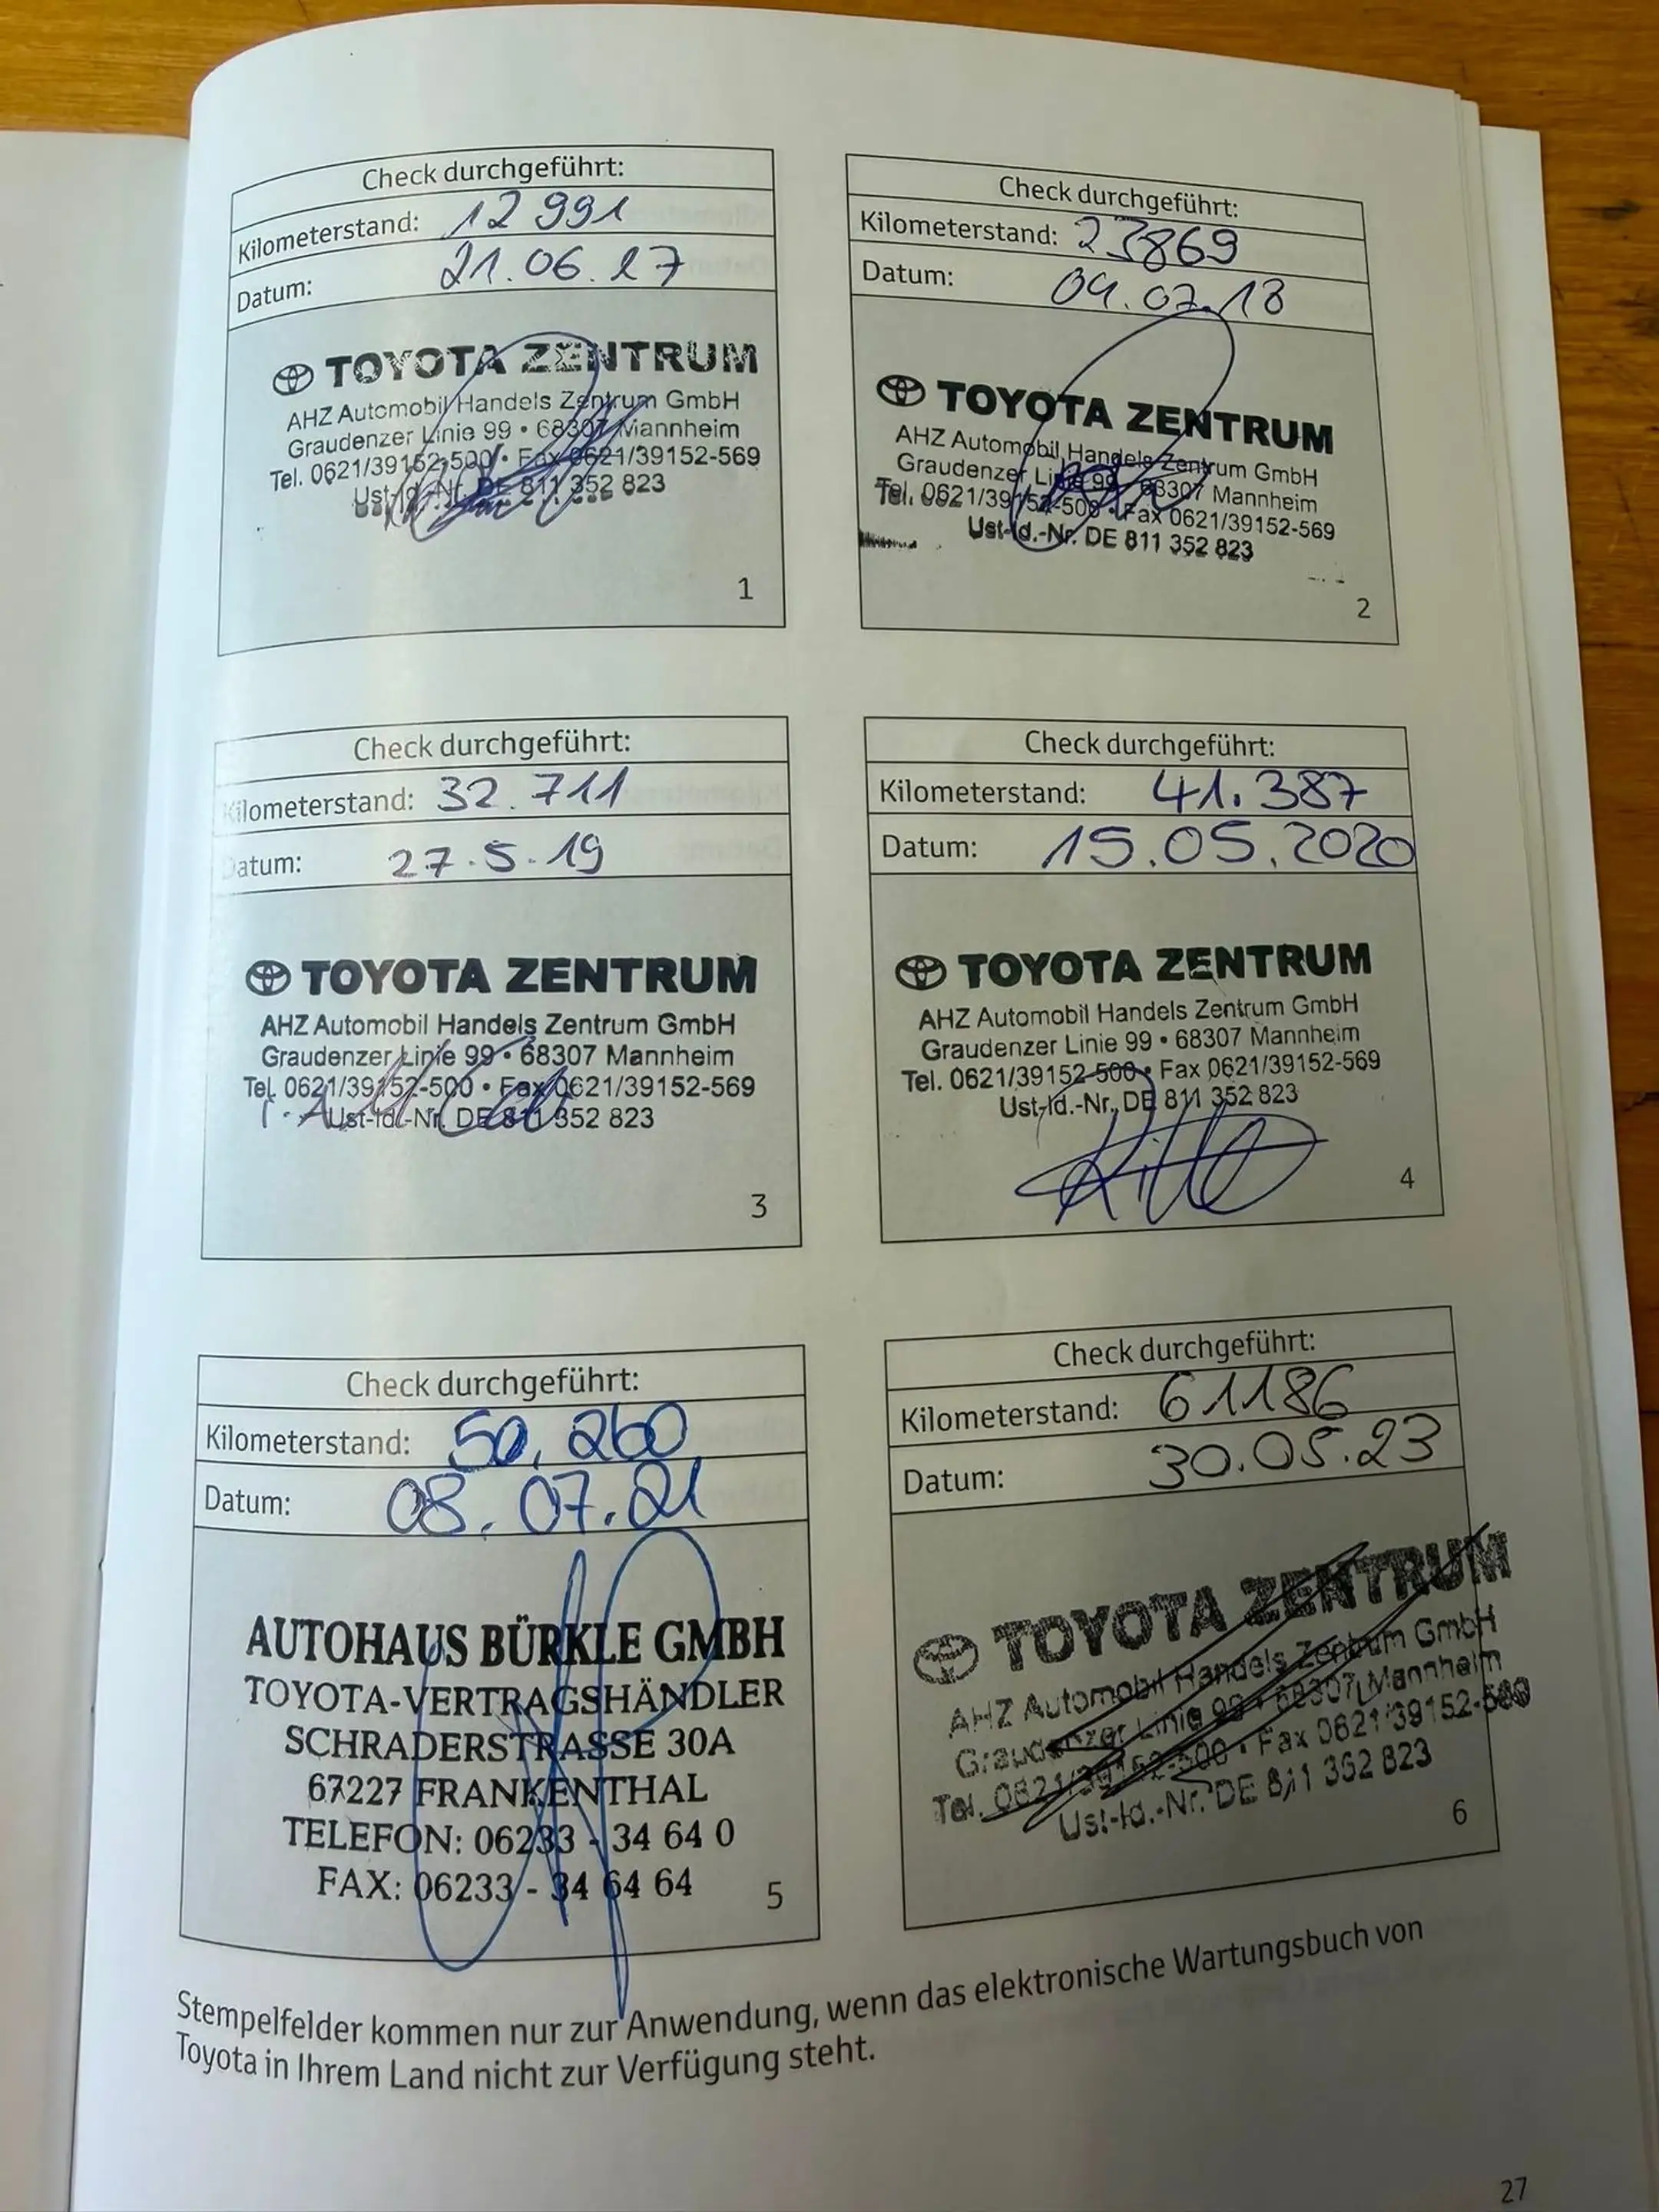 Check durchgeführt:
Kilometerstand: 12 991
Datum: 21.06.17
TOYOTA ZENTRUM
AHZ Automobil Handels Zentrum GmbH
Graudenzer Linie 99 • 68307 Mannheim
Tel. 0621/39152-500 • Fax 0621/39152-569
Ust-Id.-Nr. DE 811 352 823
1
Check durchgeführt:
Kilometerstand: 23869
Datum: 09.07.18
TOYOTA ZENTRUM
AHZ Automobil Handels Zentrum GmbH
Graudenzer Linie 99 • 68307 Mannheim
Tel. 0621/39152-500 • Fax 0621/39152-569
Ust-Id.-Nr. DE 811 352 823
2
Check durchgeführt:
Kilometerstand: 32.711
Datum: 27.5.19
TOYOTA ZENTRUM
AHZ Automobil Handels Zentrum GmbH
Graudenzer Linie 99 • 68307 Mannheim
Tel. 0621/39152-500 • Fax 0621/39152-569
Ust-Id.-Nr. DE 811 352 823
3
Check durchgeführt:
Kilometerstand: 41.387
Datum: 15.05.2020
TOYOTA ZENTRUM
AHZ Automobil Handels Zentrum GmbH
Graudenzer Linie 99 • 68307 Mannheim
Tel. 0621/39152-500 • Fax 0621/39152-569
Ust-Id.-Nr. DE 811 352 823
4
Check durchgeführt:
Kilometerstand: 50.260
Datum: 08.07.21
AUTOHAUS BÜRKLE GMBH
TOYOTA-VERTRAGSHÄNDLER
SCHRADERSTRASSE 30A
67227 FRANKENTHAL
TELEFON: 06233 - 34 64 0
FAX: 06233 - 34 64 64
5
Check durchgeführt:
Kilometerstand: 61186
Datum: 30.05.23
TOYOTA ZENTRUM
AHZ Automobil Handels Zentrum GmbH
Graudenzer Linie 99 • 68307 Mannheim
Tel. 0621/39152-500 • Fax 0621/39152-569
Ust-Id.-Nr. DE 811 352 823
6
Stempelfelder kommen nur zur Anwendung, wenn das elektronische Wartungsbuch von
Toyota in Ihrem Land nicht zur Verfügung steht.
27